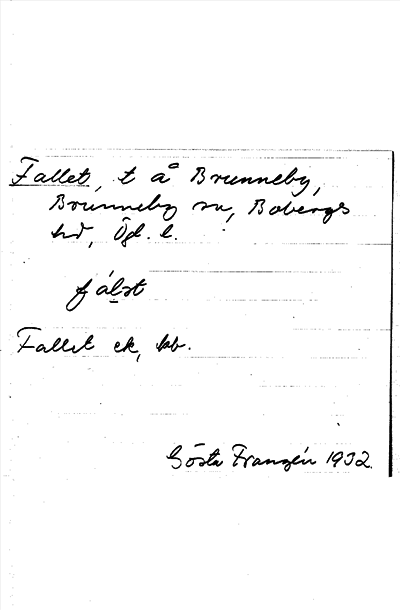 Fallet, t å Brunneby,
Brunneby sn, Bobergs
hd, Ögl. l.
fálst
Fallet ek, kb.
Gösta Franzén 1932.